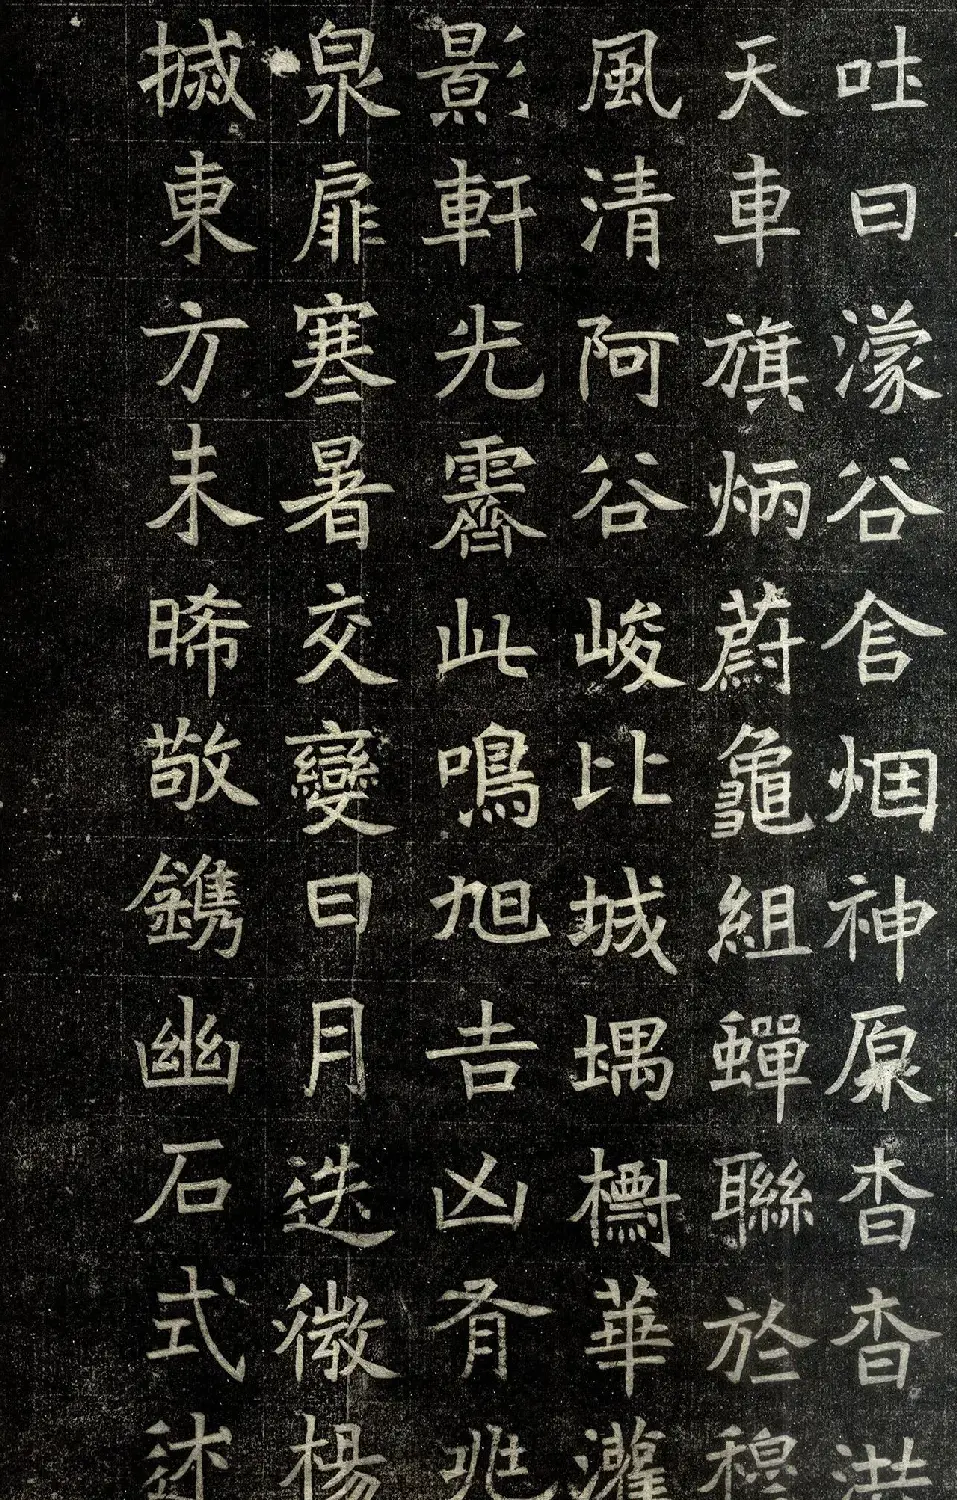 吐曰濛谷含烟神原杳杳洪
天車旗炳蔚龜組蟬聯於穆
風清阿谷峻比城堣檎華灌
影軒光霽此鳴旭吉凶有兆
泉扉寒暑交變日月迭微楊
摵東方未晞敬鐫幽石式述